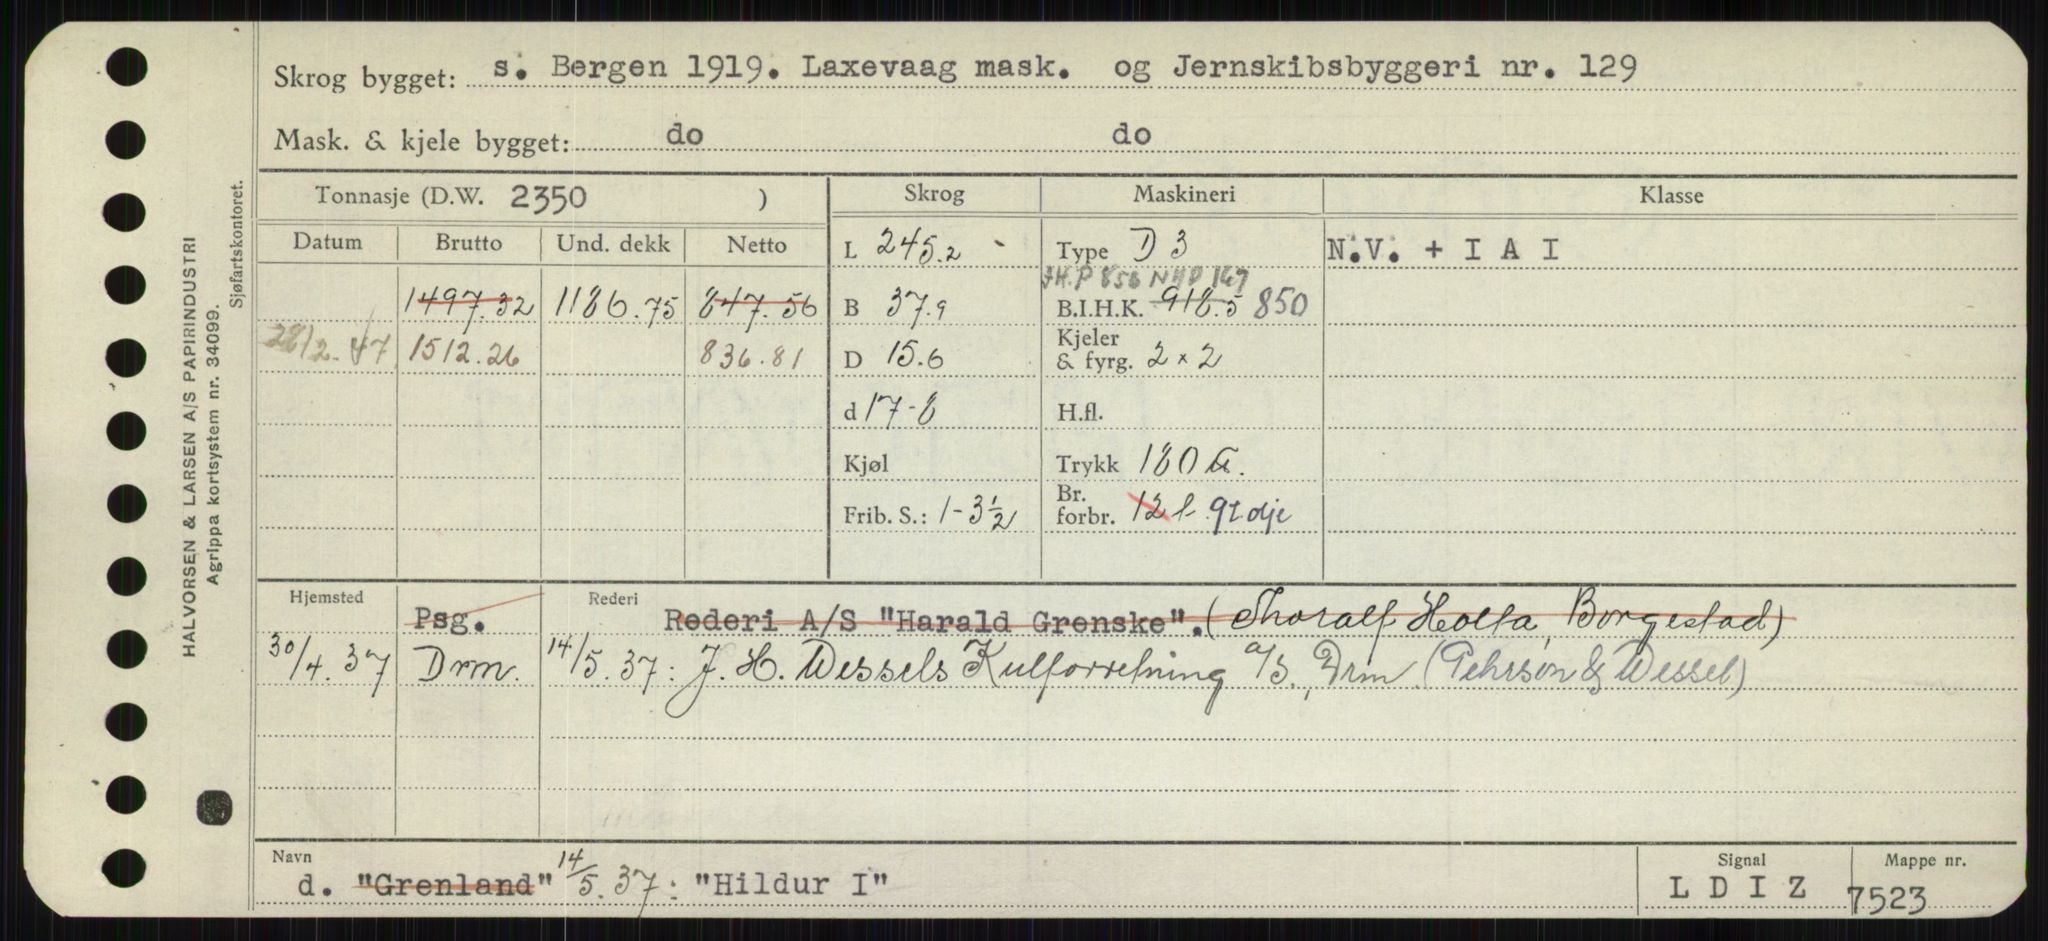 Skrog bygget: s. Bergen 1919. Laxevaag mask. og Jernskibsbyggeri nr. 129
Mask. & kjele bygget: do do
HALVORSEN & LARSEN A/S PAPIRINDUSTRI
Agrippa kortsystem nr. 34099.
Sjøfartskontoret.
Tonnasje (D.W. 2350 ) Skrog Maskineri Klasse
Datum Brutto Und. dekk Netto L 245.2 Type D 3 N.V. + I A I
I H.P 856 NHP 167
1497.32 1186.75 847.56 B 37.9 B.I.H.K. 918.5 850
28/2.47 1512.26 836.81 D 15.6 Kjeler & fyrg. 2 × 2
d 17-8 H.fl.
Kjøl Trykk 180
Frib. S.: 1-3½ Br. forbr. 12 t. 9t olje
Hjemsted Psg. Rederi Rederi A/S "Harald Grenske". (Thoralf Holta, Borgestad)
30/4.37 Drm. 14/5.37: J. H. Wessels Kulforretning a/s., Drm (Pehrson & Wessel)
Navn d. "Grenland" 14/5.37: "Hildur I" Signal L D I Z Mappe nr. 7523